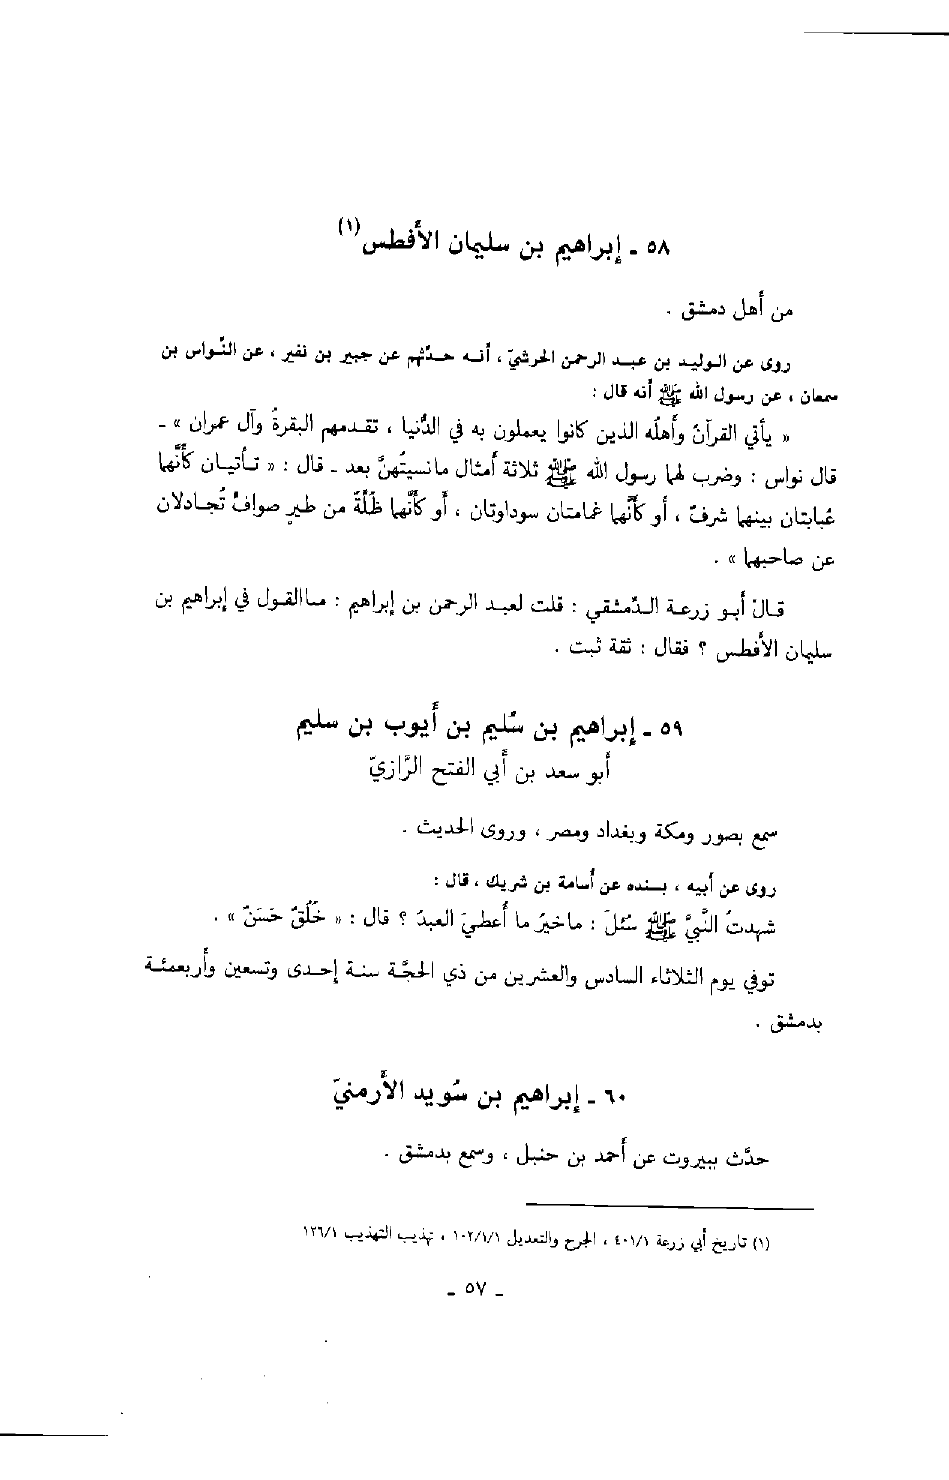 ٥٨ ـ إبراهيم بن سليمان الأفطس(١)
من أهل دمشق .
روى عن الوليد بن عبد الرحمن الجرشيّ ، أنه حدَّثهم عن جبير بن نفير ، عن النَّواس بن
سمعان ، عن رسول الله ﷺ أنه قال :
« يأتي القرآنُ وأهلُه الذين كانوا يعملون به في الدُّنيا ، تقدمهم البقرةُ وآل عمران » ـ
قال نواس : وضرب لهما رسول الله ﷺ ثلاثة أمثال مانسيتُهنَّ بعد ـ قال : « تأتيان كأنَّهما
غيابتان بينهما شرفٌ ، أو كأنَّهما غمامتان سوداوتان ، أو كأنَّهما ظلَّةٌ من طيرٍ صوافٌ تُجادلان
عن صاحبهما » .
قال أبو زرعة الدِّمشقي : قلت لعبد الرحمن بن إبراهيم : ماالقول في إبراهيم بن
سليمان الأفطس ؟ فقال : ثقة ثبت .
٥٩ ـ إبراهيم بن سُليم بن أيوب بن سليم
أبو سعد بن أبي الفتح الرَّازيّ
سمع بصور ومكة وبغداد ومصر ، وروى الحديث .
روى عن أبيه ، بسنده عن أسامة بن شريك ، قال :
شهدتُ النَّبيَّ ﷺ سُئلَ : ماخيرُ ما أُعطيَ العبدُ ؟ قال : « خُلُقٌ حَسَنٌ » .
توفي يوم الثلاثاء السادس والعشرين من ذي الحجَّة سنة إحدى وتسعين وأربعمئة
بدمشق .
٦٠ ـ إبراهيم بن سُويد الأرمنيّ
حدَّث ببيروت عن أحمد بن حنبل ، وسمع بدمشق .
(١) تاريخ أبي زرعة ٤٠١/١ ، الجرح والتعديل ١٠٢/١/١ ، تهذيب التهذيب ١٢٦/١
ـ ٥٧ ـ